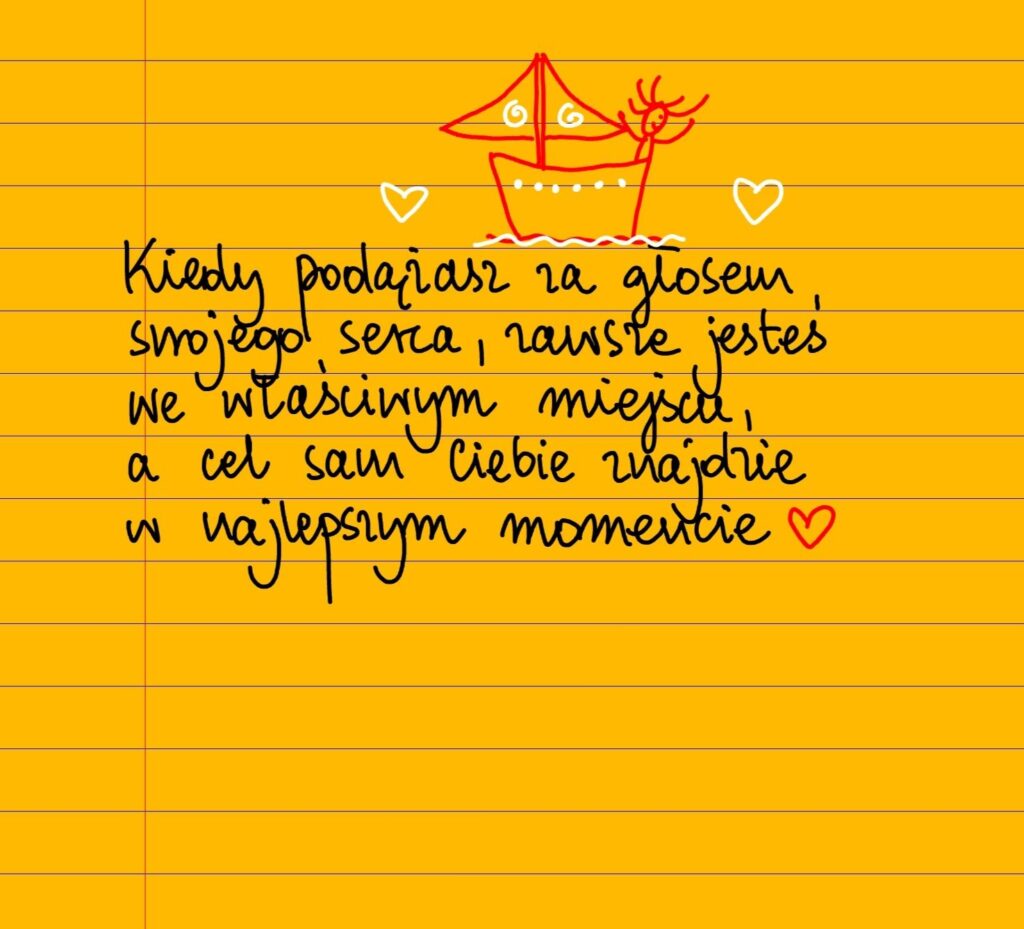 Kiedy podążasz za głosem
swojego serca, zawsze jesteś
we właściwym miejscu,
a cel sam Ciebie znajdzie
w najlepszym momencie ♡